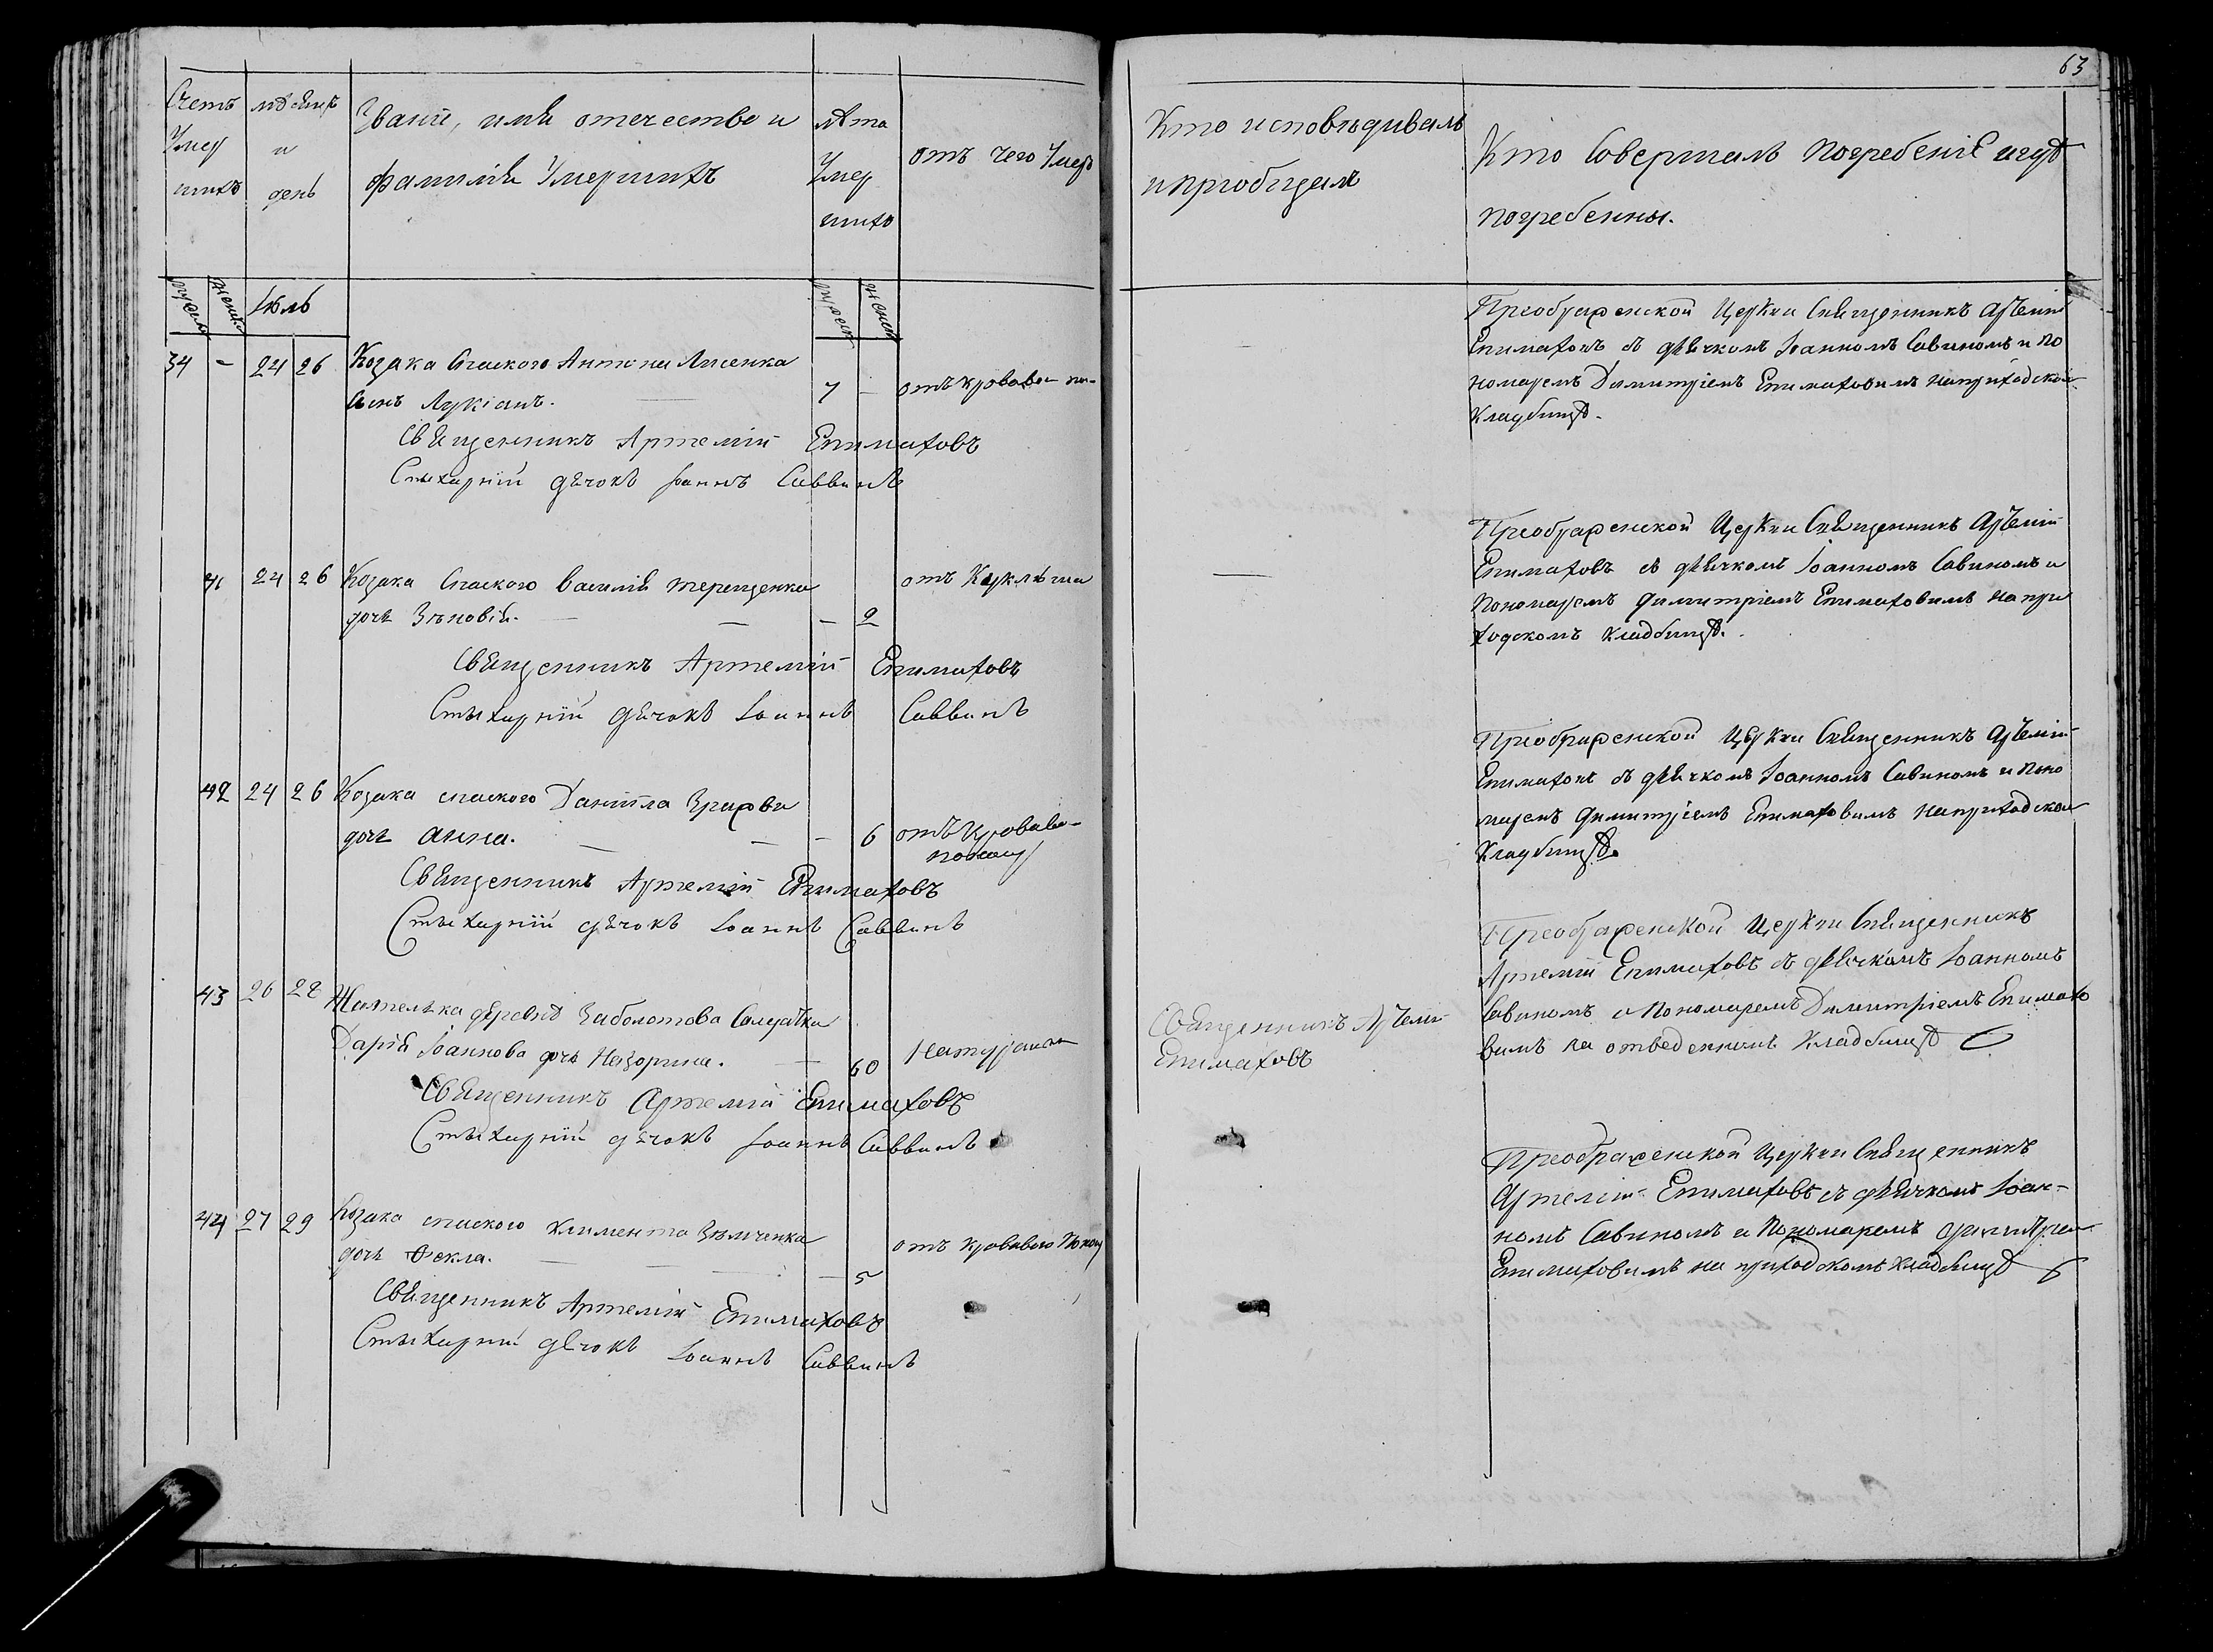 63
Счетъ
Умер
шихъ
мѣсяцъ
и
день
Званіе, имя отечество и
фамилія Умершихъ
лѣта
Умер
шихъ
отъ чего Умеръ
Кто исповѣдивалъ
и пріобщалъ
Кто Совершалъ погребеніе и гдѣ
погребенны.
Іюль
34 - 24 26 Козака Спаского Антона Лисенка
сынъ Лукіанъ. 7 - отъ кроваво по-
Священникъ Артемій Епимаховъ
Стихарній дячокъ Іоаннъ Саввинъ
Преображенской Церкви Священникъ Артемій
Епимаховъ съ дьячкомъ Іоанномъ Савиномъ и по
номаремъ Димитріемъ Епимаховимъ на приходском
кладбищѣ.
41 24 26 Козака Спаского Василія Терещенка
дочь Зѣновія. - 2 отъ
Священникъ Артемій Епимаховъ
Стихарній дячокъ Іоаннъ Саввинъ
Преображенской Церкви Священникъ Артемій
Епимаховъ съ дьячкомъ Іоанномъ Савиномъ и
Пономаремъ Димитріемъ Епимаховимъ на при
ходскомъ кладбищѣ.
42 24 26 Козака спаского Даніила
дочь Анна. - 6 отъ Кроваво-
поносу
Священникъ Артемій Епимаховъ
Стихарній дячокъ Іоаннъ Саввинъ
Преображенской Церкви Священникъ Артемій
Епимаховъ съ дьячкомъ Іоанномъ Савиномъ и Поно
маремъ Димитріемъ Епимаховимъ на приходском
Кладбищѣ.
43 26 28 Жителька деревнѣ Заболотова Салдатка
Дарія Іоаннова дочь Назорина. - 60 Натурально
Священникъ Артемій Епимаховъ
Стихарній дячокъ Іоаннъ Саввинъ
Священникъ Артемій
Епимаховъ
Преображенской Церкви Священникъ
Артемій Епимаховъ съ дьячкомъ Іоанномъ
Савиномъ и Пономаремъ Димитріемъ Епимахо
вимъ на отведенномъ Кладбищѣ
44 27 29 Козака спаского Климента Зѣмченка
дочь Ѳекла. - 5 отъ кроваваго Поносу
Священникъ Артемій Епимаховъ
Стихарній дячокъ Іоаннъ Саввинъ
Преображенской Церкви Священникъ
Артемій Епимаховъ съ дьячкомъ Іоан-
номъ Савиномъ и Пономаремъ Димитріем
Епимаховимъ на приходскомъ кладбищѣ